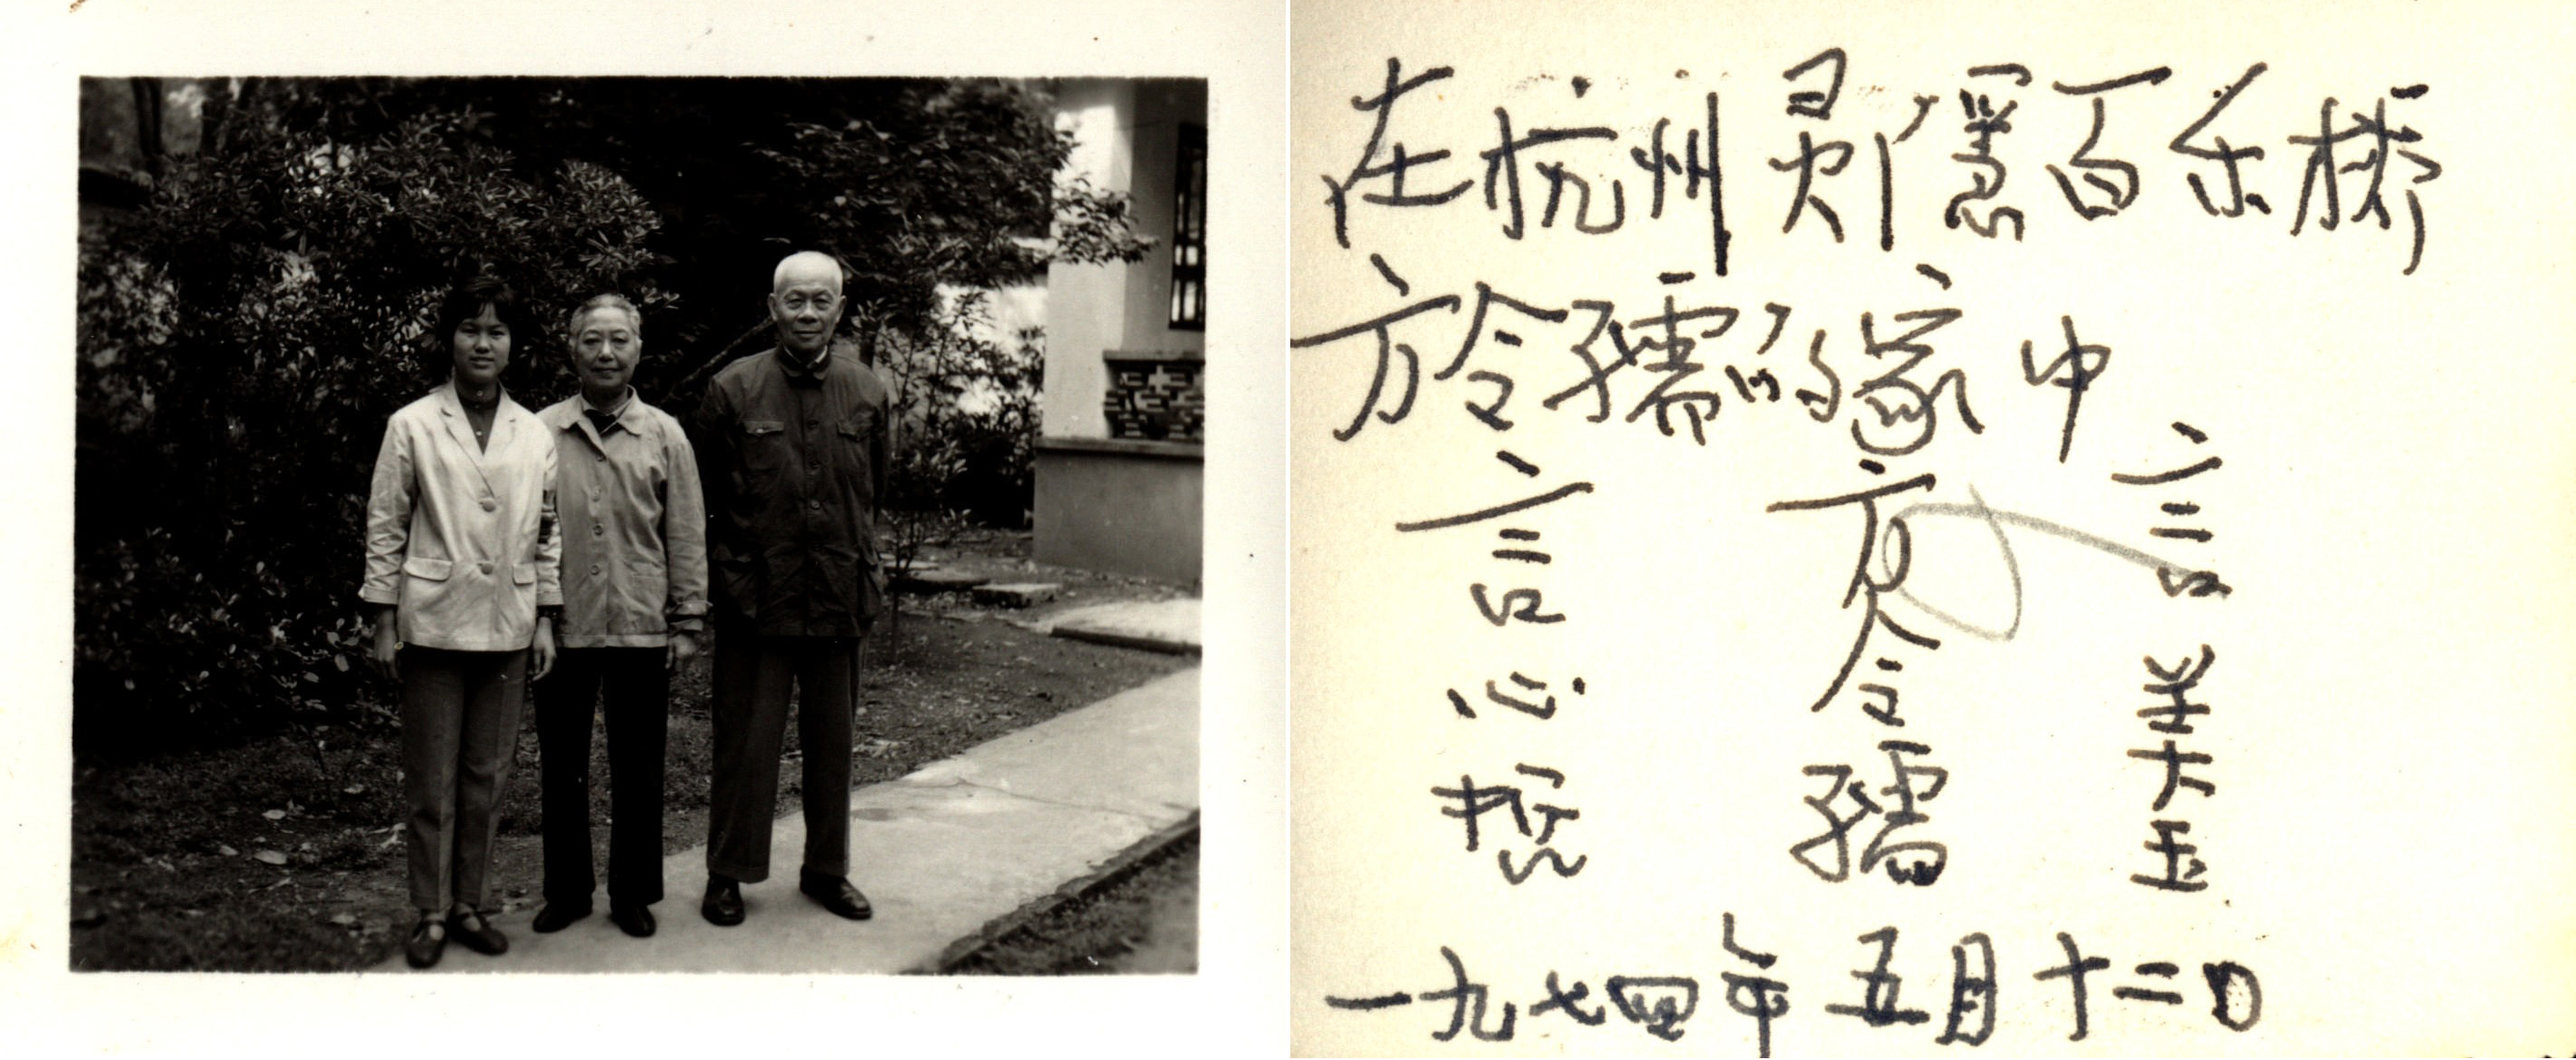 在杭州灵隱百乐桥
方令孺的家中
言心哲
方令孺
言美玉
一九七四年五月十二日